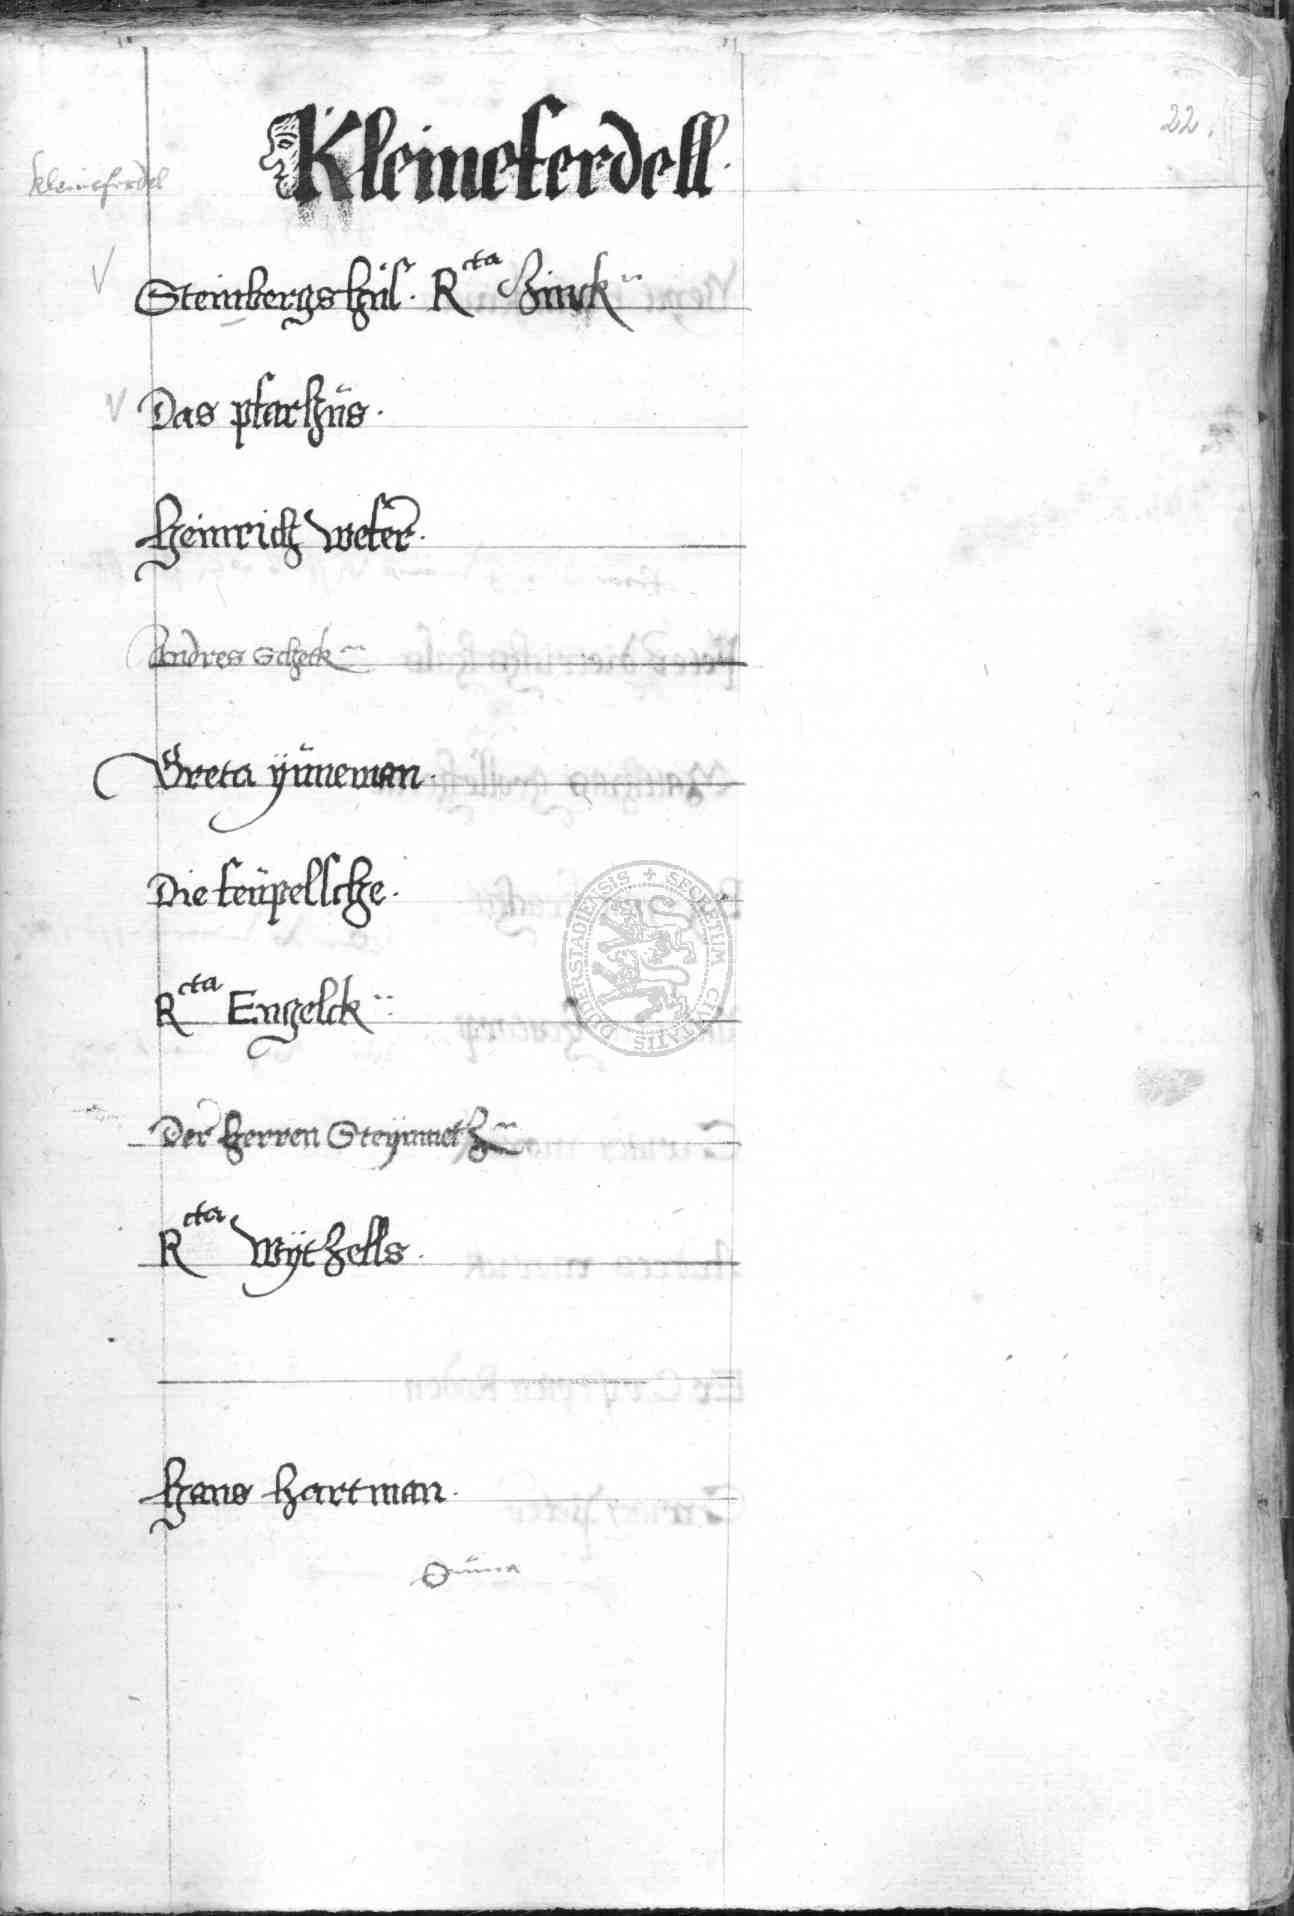 22.
Kleineferdell.
kleineferdel
Steinbergs hůs. Rcta Zinck
Das pfarhůs.
Heinrich Wefer.
Andres Scheck
Greta ÿůneman.
Die feüpelsche.
Rcta Engelck
Der herren Steÿnmetz
Rcta Wÿtzells.
Hans Hartman.
Sůma
SECRETUM CIVITATIS DUDERSTADIENSIS